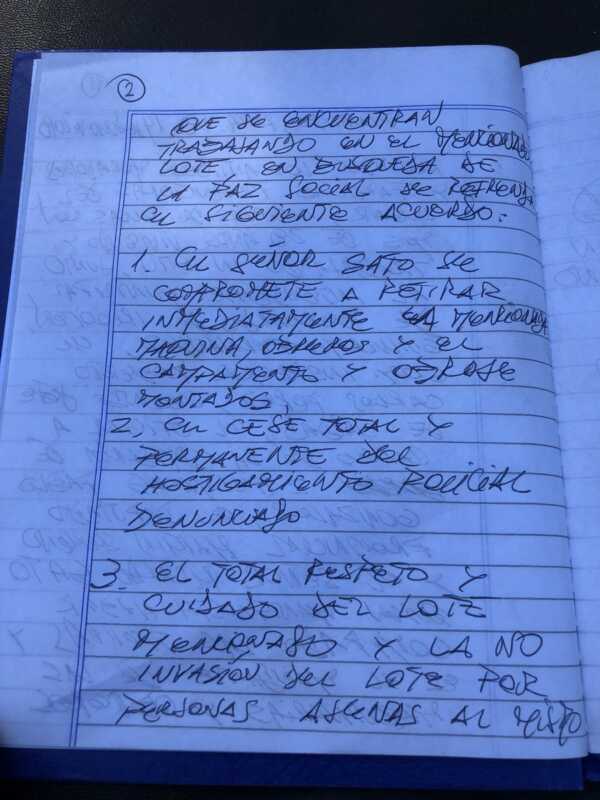 2
QUE SE ENCUENTRAN
TRABAJANDO EN EL MENCIONADO
LOTE, EN BUSQUEDA DE
LA PAZ SOCIAL SE REFRENDA
EL SIGUIENTE ACUERDO:
1. EL SEÑOR SATO SE
COMPROMETE A RETIRAR
INMEDIATAMENTE LA MENCIONADA
MAQUINA, OBREROS Y EL
CAMPAMENTO Y
MONTADOS.
2, EL CESE TOTAL Y
PERMANENTE DEL
HOSTIGAMIENTO POLICIAL
DENUNCIADO
3. EL TOTAL RESPETO Y
CUIDADO DEL LOTE
MENCIONADO Y LA NO
INVASIÓN DEL LOTE POR
PERSONAS AGENAS AL MISMO